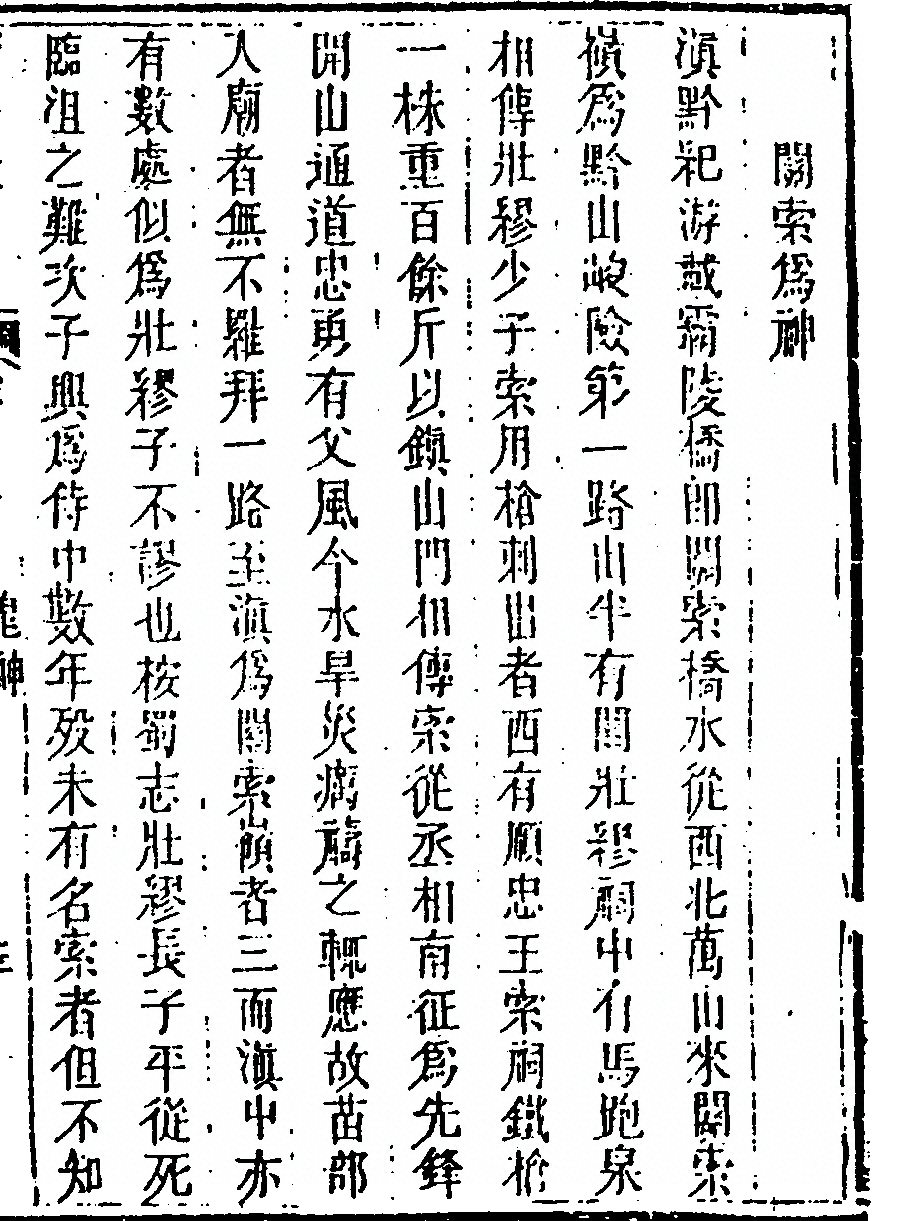 關索爲神
滇黔祀游載霜陵橋郎關索橋水從西北萬山來關索
嶺爲黔山峻險第一路山半有關壯繆祠中有馬跑泉
相傳壯繆少子索用槍刺出者西有順忠王索祠鐵槍
一株重百餘斤以鎮山門相傳索從丞相南征爲先鋒
開山通道忠勇有父風今水旱災癘禱之輒應故苗部
人廟者無不羅拜一路至滇爲關索嶺者三而滇中亦
有數處似爲壯繆子不謬也按蜀志壯繆長子平從死
臨沮之難次子興爲侍中數年歿未有名索者但不知